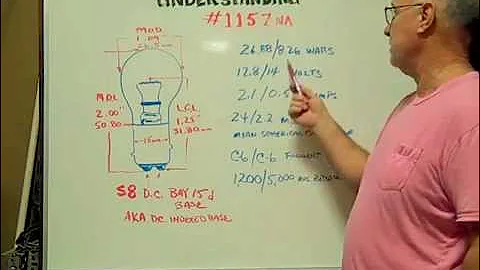 UNDERSTANDING
#1157NA
M.O.D.
1.04
26.5mm
M.O.L.
2.00"
50.80
L.C.L.
1.25"
31.80mm
15mm
S8 D.C. BAY 15d
BASE
AKA DC INDEXED BASE
26.88/8.26 WATTS
12.8/14 VOLTS
2.1/0.5
24/2.2
MEAN SPHERICAL
C6/C-6 FILAMENT
1200/5,000